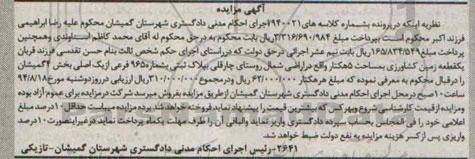 آگهی مزایده
نظریه اینکه در پرونده بشماره کلاسه های ۹۴۰۰۲۱ اجرای احکام مدنی دادگستری شهرستان گمیشان محکوم علیه رضا ابراهیمی
فرزند اکبر محکوم است بپرداخت مبلغ ۲/۳۱۶/۶۹۰/۹۸۴ ریال بابت محکوم به در حق محکوم له آقای محمد کاظم اسناوندی وهمچنین
پرداخت مبلغ ۱۶۵/۸۳۴/۵۴۹ ریال بابت نیم عشر اجرائی در حق دولت که در راستای اجرای حکم شخص ثالث بنام حسن تقدسی فرزند قربان
یکقطعه زمین کشاورزی بمساحت ۵هکتار واقع در اراضی شمال روستای چارقلی بپلاک ثبتی بشماره ۹۶۵ فرعی از یک اصلی بخش ۴ گمیشان
را در قبال محکوم به معرفی نموده که مبلغ هر هکتار ۶۲/۰۰۰/۰۰۰ ریال ودر مجموع ۳۱۰/۰۰۰/۰۰۰ ریال ارزیابی در روز دوشنبه مورخ ۹۴/۸/۱۸
ساعت ۱۰ صبح در محل اجرای احکام مدنی دادگستری شهرستان گمیشان از طریق مزایده بفروش میرسد شرکت در مزایده برای عموم آزاد بوده
ومزایده از قیمت کارشناسی شروع وبهر کس که بیشترین قیمت را پیشنهاد نماید فروخته خواهد شد. برنده مزایده میبایست حداقل ۱۰ درصد مبلغ
اعلامی خود را فی المجلس بحساب سپرده دادگستری واریز نماید والباقی آن را ظرف مهلت یکماه پرداخت نماید در غیر اینصورت ۱۰ درصد
واریزی پس از کسر هزینه مزایده به نفع دولت ضبط خواهد شد.
۲۶۴۱-رئیس اجرای احکام مدنی دادگستری شهرستان گمیشان-تازیکی